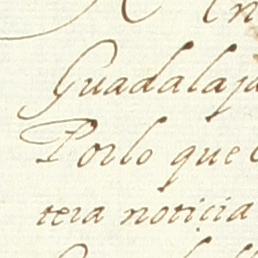 Guadalaja
Porlo que
tera noticia